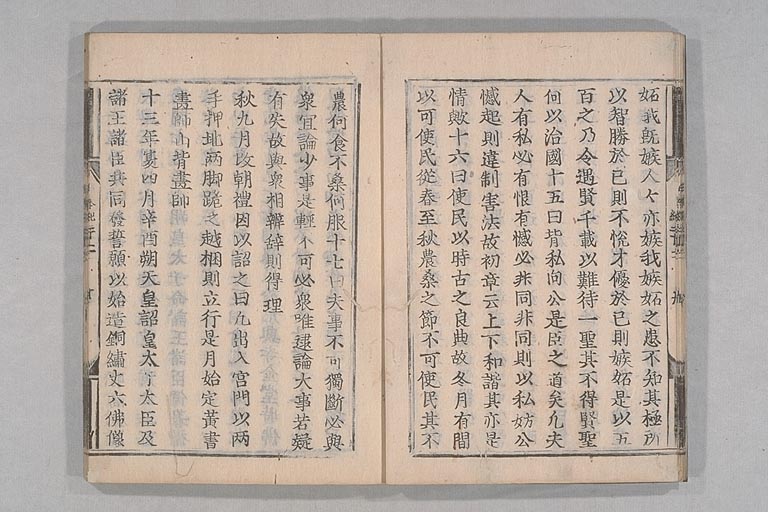 妬我既嫉人々亦嫉我嫉妬之患不知其極所
以智勝於己則不悅才優於己則嫉妬是以五
百之乃令遇賢千載以難待一聖其不得賢聖
何以治國十五曰背私向公是臣之道矣凡夫
人有私必有恨有憾必非同非同則以私妨公
憾起則違制害法故初章云上下和諧其亦是
情歟十六曰使民以時古之良典故冬月有間
以可使民從春至秋農桑之節不可使民其不
農何食不桑何服十七曰夫事不可獨斷必與
衆宜論少事是輕不可必衆唯逮論大事若疑
有失故與衆相辨辞則得理
秋九月改朝禮因以詔之曰凡出入宮門以兩
手押地兩脚跪之越梱則立行是月始定黃書
畫師山背畫師
十三年夏四月辛酉朔天皇詔皇太子大臣及
諸王諸臣共同發誓願以始造銅繡丈六佛像